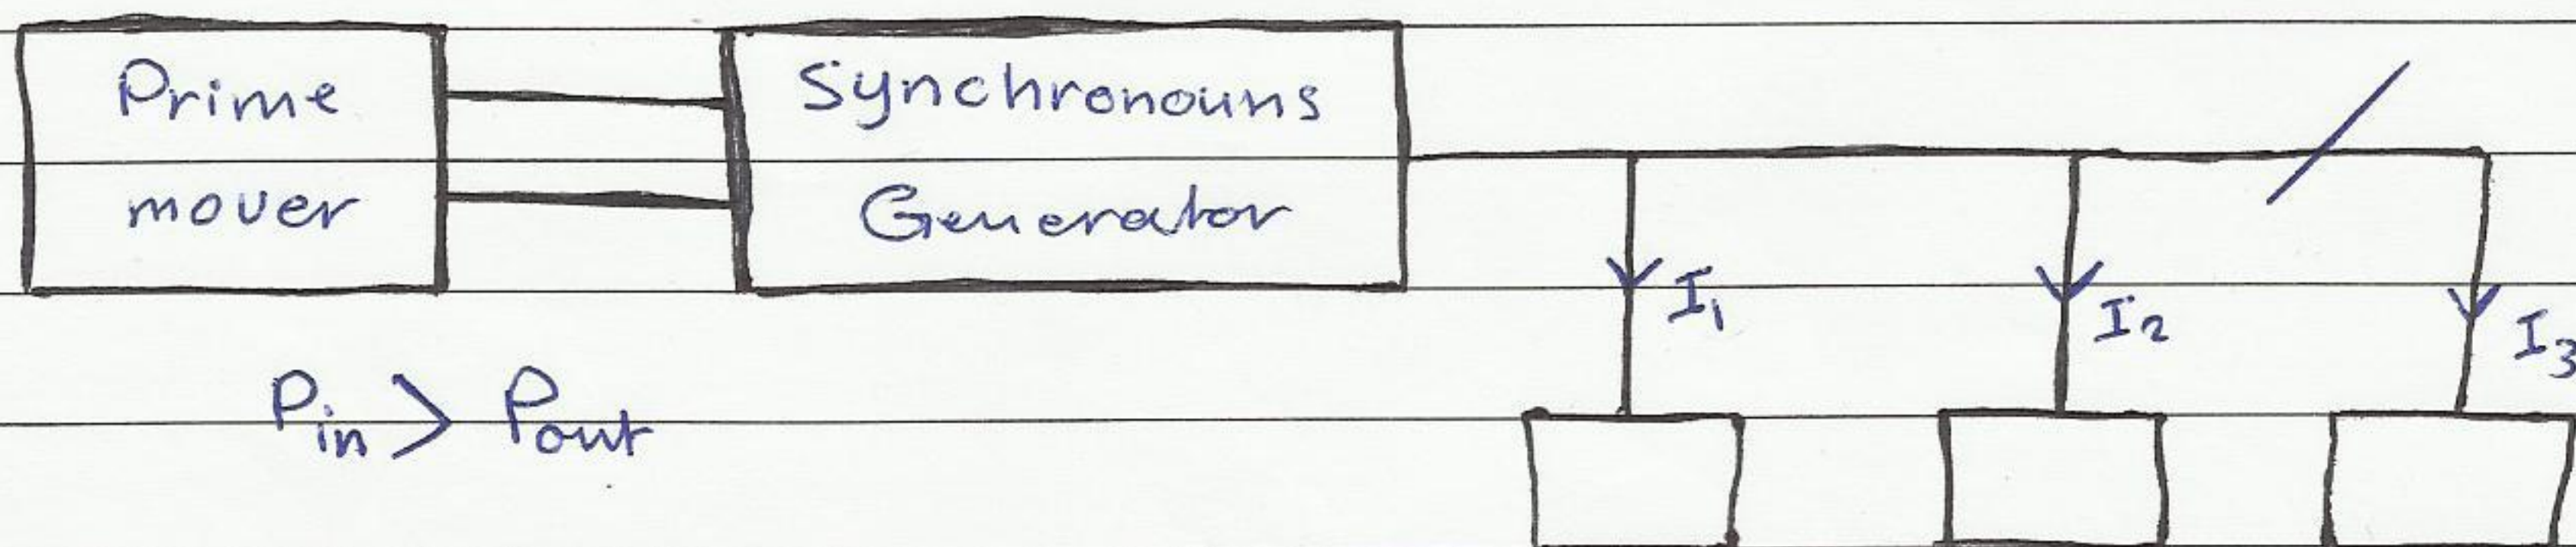 Prime
mover
Synchronouns
Generator
I₁
I₂
I₃
Pin > Pout